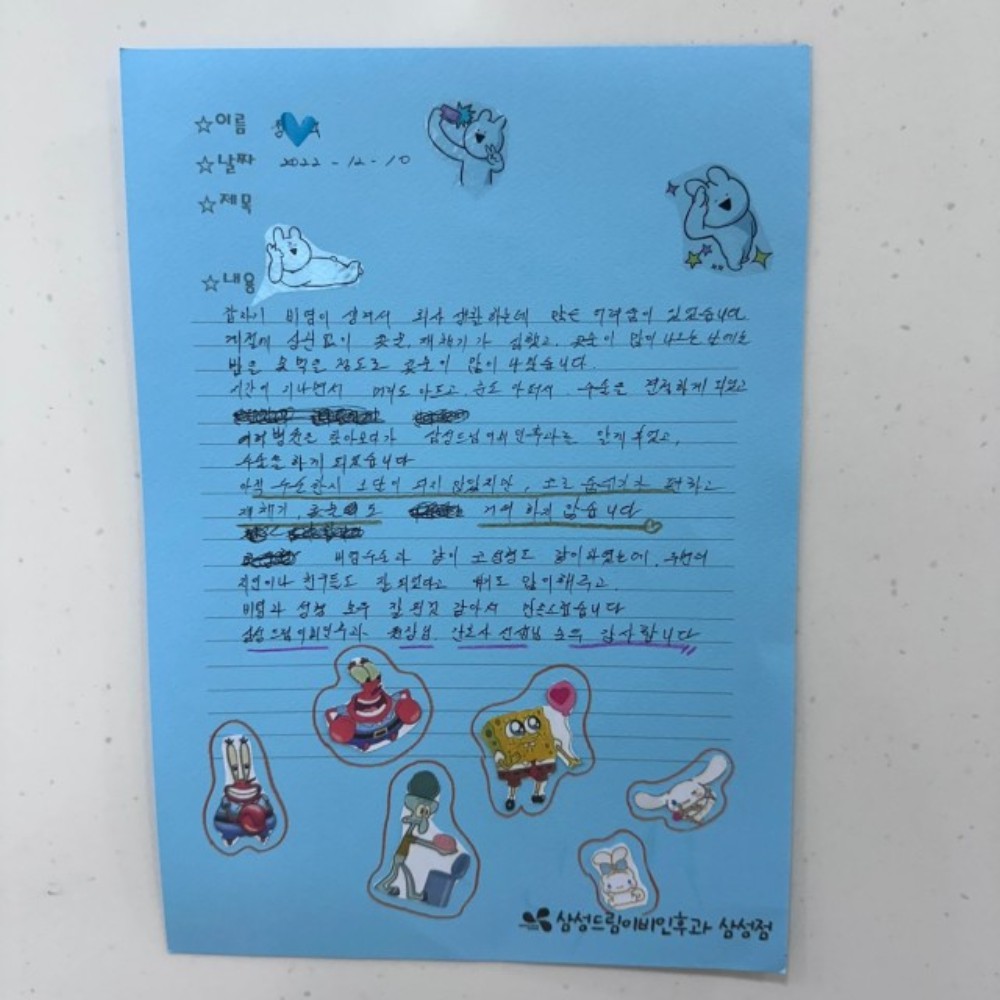 ☆이름
☆날짜 2022-12-10
☆제목
☆내용
갑자기 비염이 생겨서 회사 생활하는데 많은 어려움이 있었습니다
계절에 상관 없이 콧물, 재채기가 심했고, 콧물이 많이 나오는 날에는
밥을 못 먹을 정도로 콧물이 많이 나왔습니다.
시간이 지나면서 머리도 아프고, 눈도 아파서 수술을 결정하게 되었고
여러 병원을 찾아보다가 삼성드림이비인후과를 알게 되었고,
수술을 하게 되었습니다
아직 수술한지 오단이 되지 않았지만, 코로 숨쉬기가 편하고
재채기, 콧물도 거의 하지 않습니다
비염수술과 같이 코성형도 같이 하였는데, 주변의
지인이나 친구들도 잘 되었다고 얘기도 많이 해주고,
비염과 성형 모두 잘 된것 같아서 만족스럽습니다
삼성드림이비인후과 원장님, 간호사 선생님 모두 감사합니다
삼성드림이비인후과 삼성점